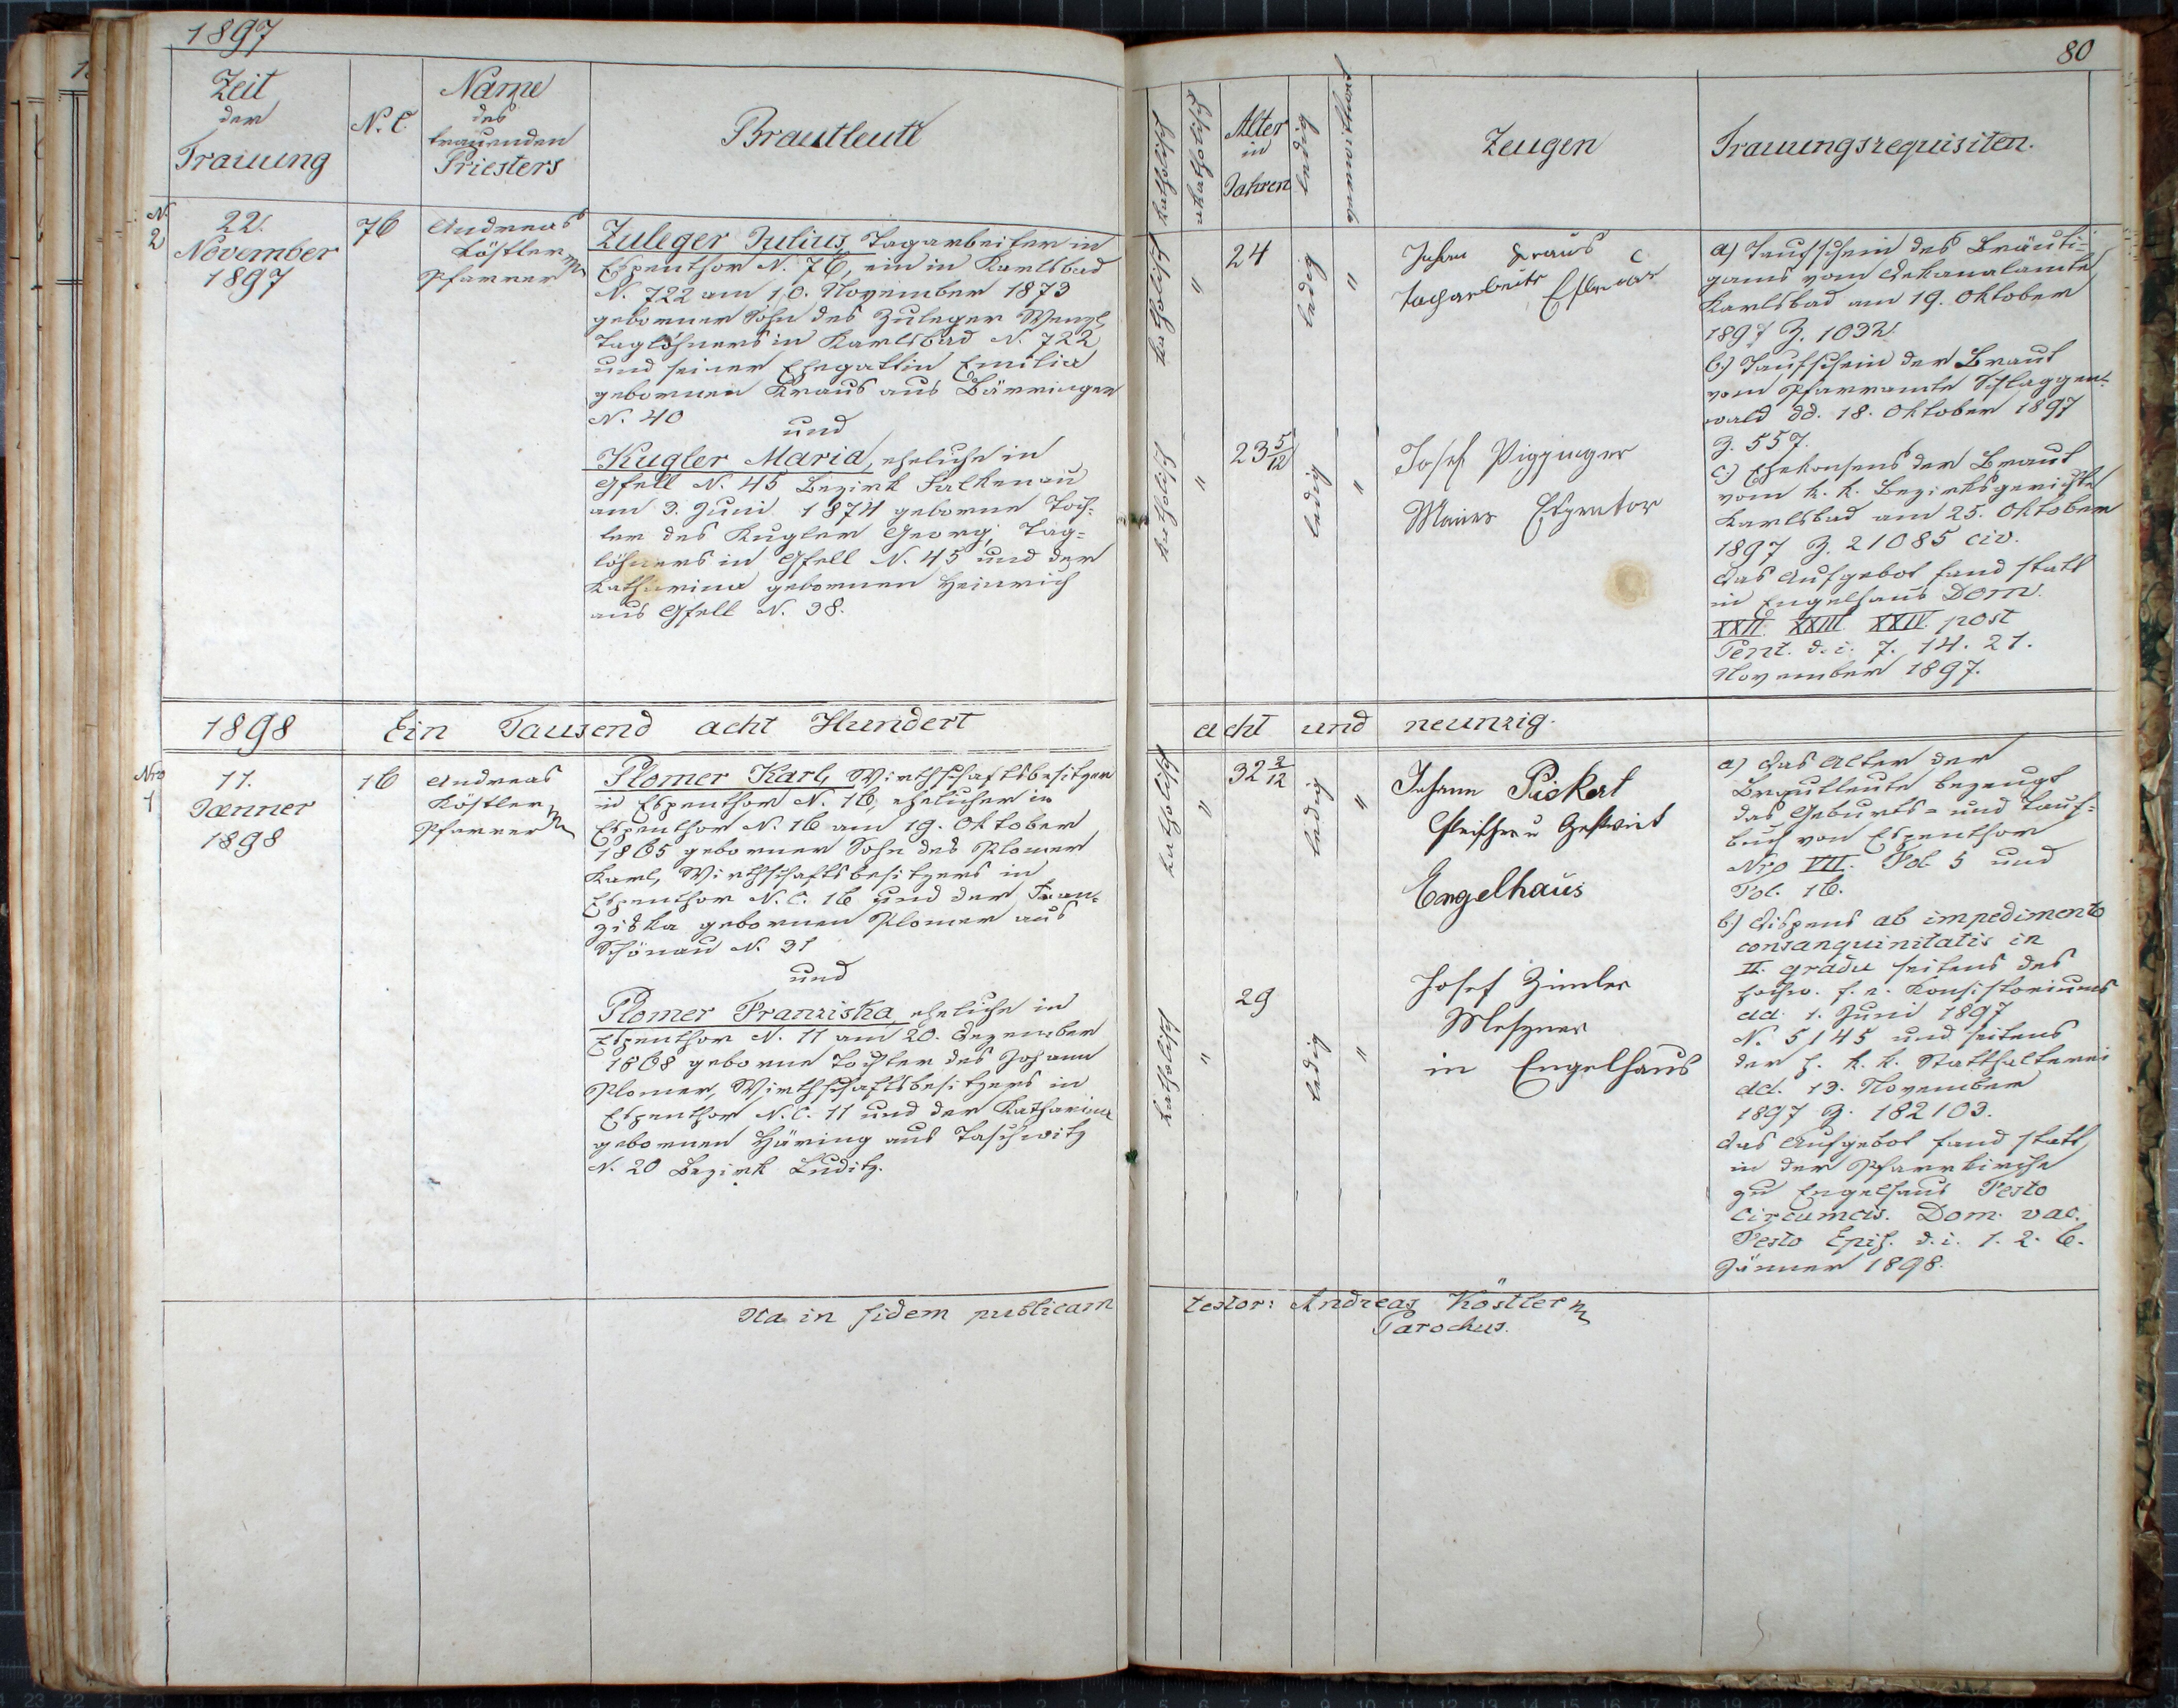 1897
80
Zeit
der
Trauung
N. C.
Name
des
trauenden
Priesters
Brautleute
katholisch
akatholisch
Alter
in
Jahren
ledig
verwittwet
Zeugen
Trauungsrequisiten.
N.
2
22.
November
1897
76
Andreas
Köstler
Pfarrer
Zuleger Julius, Tagarbeiter in
Espenthor N. 76, ein in Karlsbad
N. 722 am 10. November 1873
geborner Sohn des Zuleger Wenzl,
Taglöhners in Karlsbad N. 722
und seiner Ehegattin Emilia
gebornen Kraus aus Bärringen
N. 40
und
Kugler Maria, eheliche in
Gfell N. 45 Bezirk Falkenau
am 3. Juni 1874 geborne Toch-
ter des Kugler Georg, Tag=
löhners in Gfell N. 45 und der
Katharina gebornen Heinrich
aus Gfell N. 38.
katholisch
"
24
ledig
"
Johan Kraus
Tagarbeiter
katholisch
"
23 5/12
ledig
"
Josef
Maurer Espentor
a) Taufschein des Bräuti=
gams vom Dekanalamte
Karlsbad am 19. Oktober
1897 Z. 1032.
b.) Taufschein der Braut
vom Pfarramte Schlaggen=
wald dd. 18. Oktober 1897
Z. 557.
c.) Ehekonsens der Braut
vom k. k. Bezirksgerichte
Karlsbad am 25. Oktober
1897 Z. 21085 civ.
Das Aufgebot fand statt
in Engelhaus Dom.
XXII. XXIII. XXIV. post
Pent. d. i. 7. 14. 21.
November 1897.
1898 Ein Tausend acht Hundert acht und neunzig.
Nro
1
11.
Jænner
1898
16
Andreas
Köstler
Pfarrer
Plomer Karl, Wirthschaftsbesitzer
in Espenthor N. 16, ehelicher in
Espenthor N. 16 am 19. Oktober
1865 geborner Sohn des Plomer
Karl, Wirthschaftsbesitzers in
Espenthor N. C. 16 und der Fran=
ziska gebornen Plomer aus
Schönau N. 31
und
Plomer Franziska, eheliche in
Espenthor N. 11 am 20. Dezember
1868 geborne Tochter des Johann
Plomer, Wirthschaftsbesitzers in
Espenthor N. C. 11 und der Katharina
gebornen Häring aus Taschwitz
N. 20 Bezirk Luditz.
katholisch
"
32 2/12
ledig
"
Johann Pickert
Fleischer u Gastwirt
Engelhaus
katholisch
"
29
ledig
"
Josef Zimler
Meszner
in Engelhaus
a) Das Alter der
Brautleute bezeugt
das Geburts= und Tauf=
buch von Espenthor
Nro VII. Fol. 5 und
Fol. 16.
b.) Dispens ab impedimento
consanguinitatis in
II. gradu seitens des
hochw. f. e. Konsistoriums
dd. 1. Juni 1897
N. 5145 und seitens
der h. k. k. Statthalterei
dd. 13. November
1897 Z. 182103.
Das Aufgebot fand statt
in der Pfarrkirche
zu Engelhaus Festo
Circumcis. Dom. vac.
Festo Epif. d. i. 1. 2. 6.
Jänner 1898.
Ita in fidem publicam testor: Andreas Köstler
Parochus.